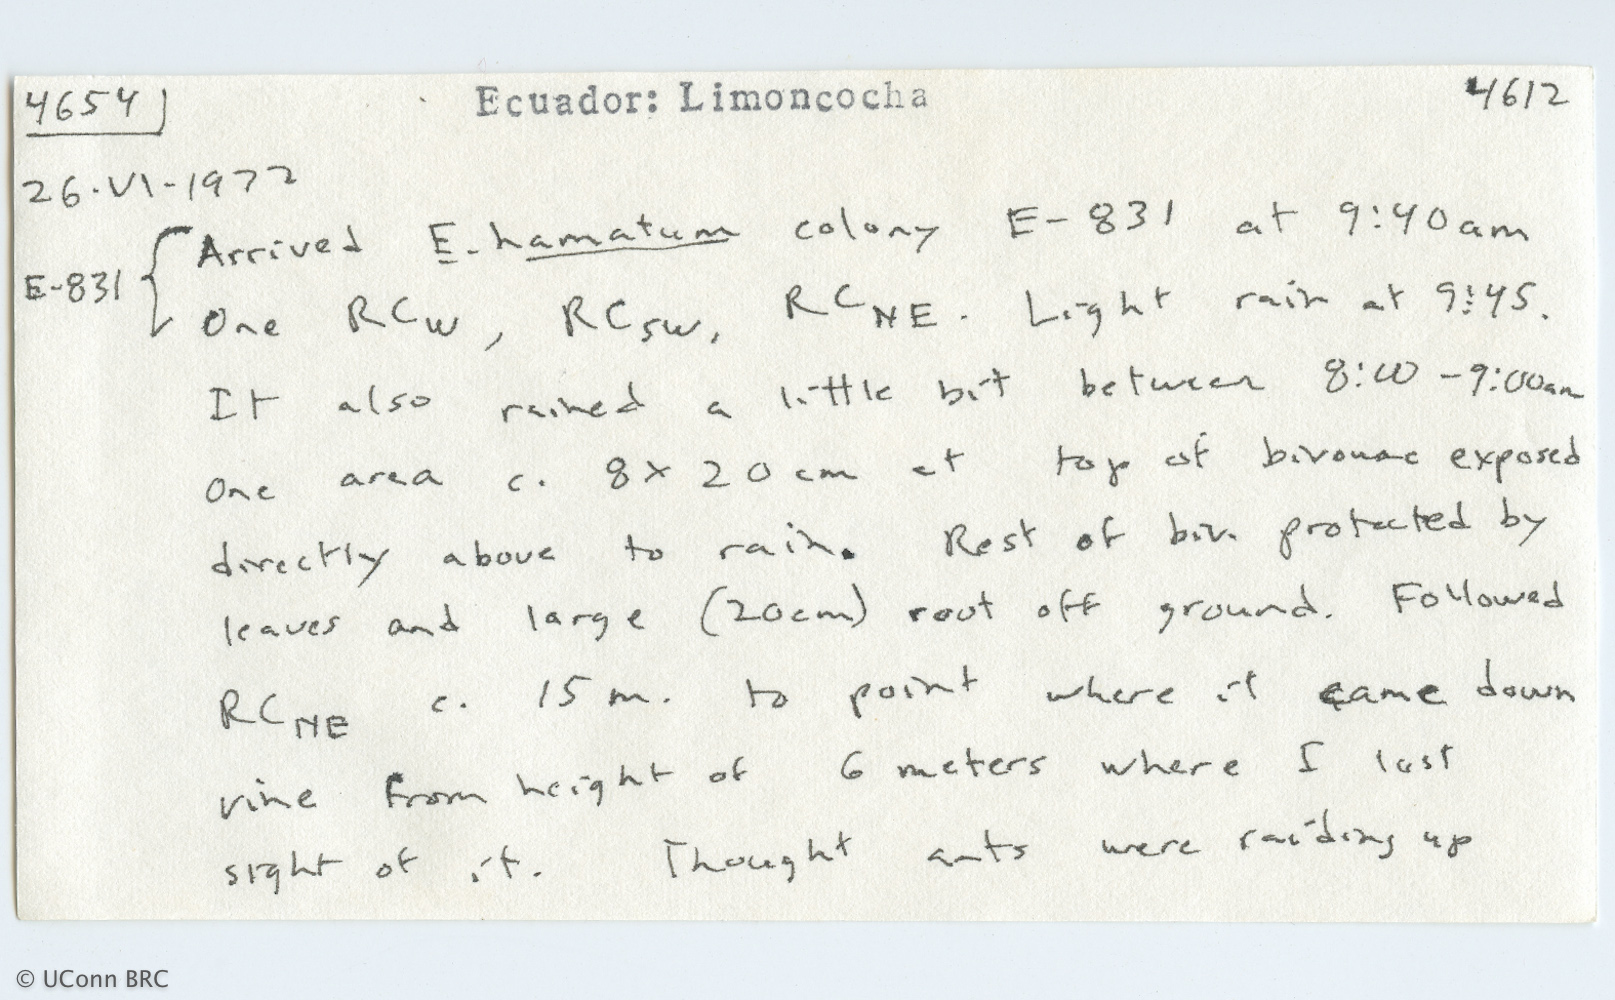 4654 Ecuador: Limoncocha 4612
26-VI-1972
Arrived E. hamatum colony E-831 at 9:40am
E-831 { One RCW, RCSW, RCNE. Light rain at 9:45.
It also rained a little bit between 8:00-9:00am
One area c. 8x20cm at top of bivouac exposed
directly above to rain. Rest of biv. protected by
leaves and large (20cm) root off ground. Followed
RCNE c. 15m. to point where it came down
vine from height of 6 meters where I lost
sight of it. Thought ants were raiding up
© UConn BRC